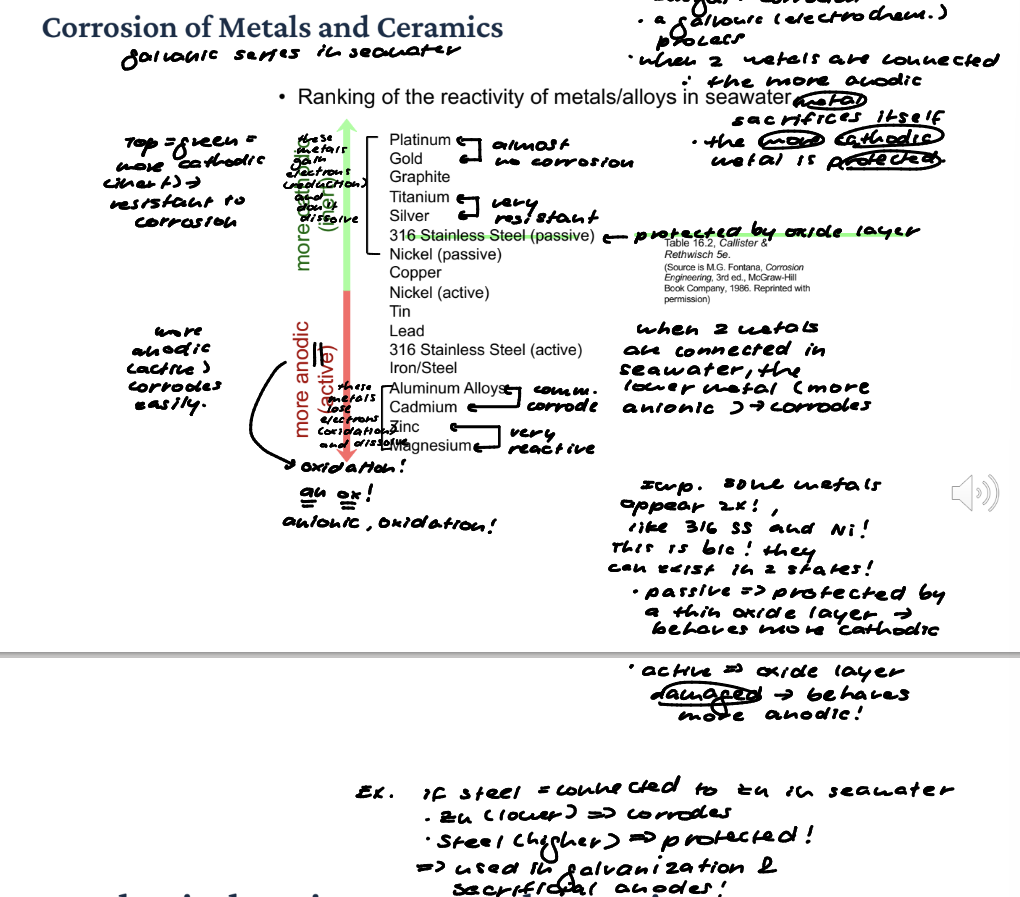 Corrosion of Metals and Ceramics
galvanic series in seawater
• a galvanic (electrochem.)
process
• when 2 metals are connected
: the more anodic
metal
sacrifices itself
• the more cathodic
metal is protected.
• Ranking of the reactivity of metals/alloys in seawater
Top = green =
more cathodic
(inert) →
resistant to
corrosion
more cathodic
(inert)
these
metals
gain
electrons
(reduction)
and
don't
dissolve
Platinum
Gold
Graphite
Titanium
Silver
316 Stainless Steel (passive)
Nickel (passive)
Copper
Nickel (active)
Tin
Lead
316 Stainless Steel (active)
Iron/Steel
Aluminum Alloys
Cadmium
Zinc
Magnesium
almost
no corrosion
very
resistant
← protected by oxide layer
Table 16.2, Callister &
Rethwisch 5e.
(Source is M.G. Fontana, Corrosion
Engineering, 3rd ed., McGraw-Hill
Book Company, 1986. Reprinted with
permission)
more
anodic
(active)
corrodes
easily.
more anodic
(active)
these
metals
lose
electrons
(oxidation)
and dissolve
comm.
corrode
very
reactive
oxidation!
an ox!
anionic, oxidation!
when 2 metals
are connected in
seawater, the
lower metal (more
anionic) → corrodes
Imp. some metals
appear 2x!,
like 316 SS and Ni!
This is b/c! they
can exist in 2 states!
• passive => protected by
a thin oxide layer →
behaves more cathodic
• active => oxide layer
damaged → behaves
more anodic!
Ex. if steel = connected to Zn in seawater
• Zn (lower) => corrodes
• Steel (higher) => protected!
=> used in galvanization &
sacrificial anodes!